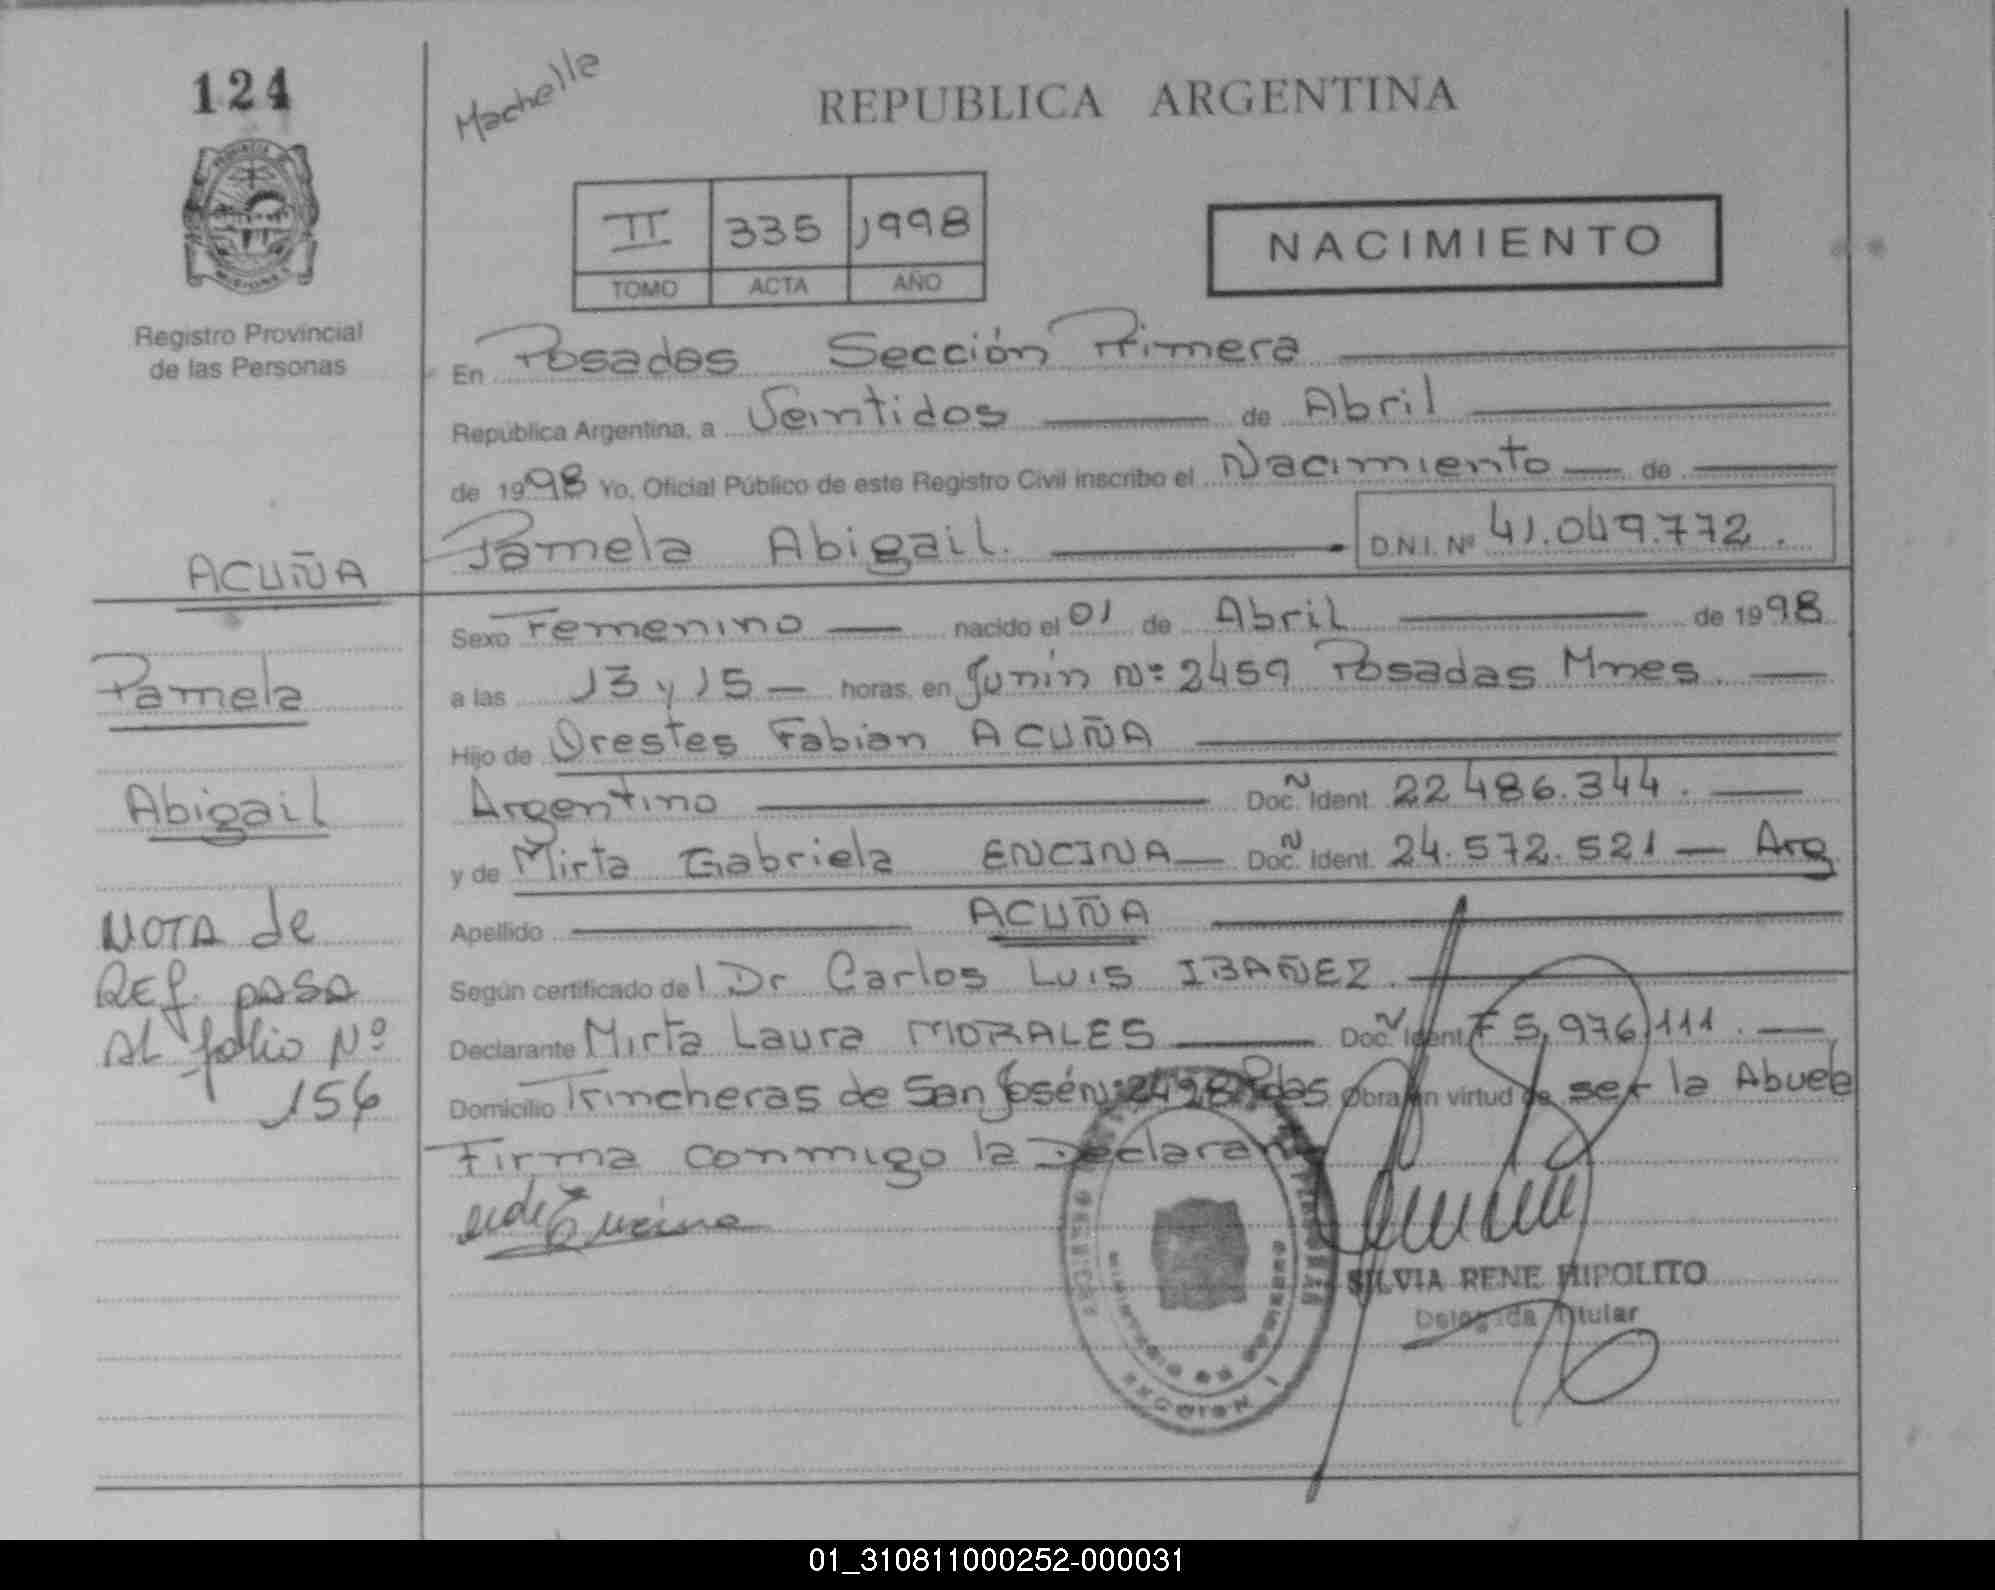 124
Machelle
REPUBLICA ARGENTINA
PROVINCIA DE MISIONES
Registro Provincial
de las Personas
II 335 1998
TOMO ACTA AÑO
NACIMIENTO
En Posadas Sección Primera
República Argentina, a Veintidos de Abril
de 1998 Yo, Oficial Público de este Registro Civil inscribo el Nacimiento de
Pamela Abigail. D.N.I. Nº 41.049.772.
ACUÑA
Pamela
Abigail
NOTA de
REf. pASA
AL folio Nº
156
Sexo Femenino nacido el 01 de Abril de 1998
a las 13 y 15 horas, en Junín Nº 2459 Posadas Mnes
Hijo de Orestes Fabian ACUÑA
Argentino Doc. Ident. 22 486.344.
y de Mirta Gabriela ENCINA Doc. Ident. 24.572.521 Arg
Apellido ACUÑA
Según certificado del Dr Carlos Luis IBAÑEZ.
Declarante Mirta Laura MORALES Doc. Ident. F 5,976,111.
Domicilio Trincheras de San José Nº 2498 Pdas Obra en virtud de ser la Abuela
Firma conmigo la Declarante
Encina
SILVIA RENE HIPOLITO
Delegada Titular
01_310811000252-000031